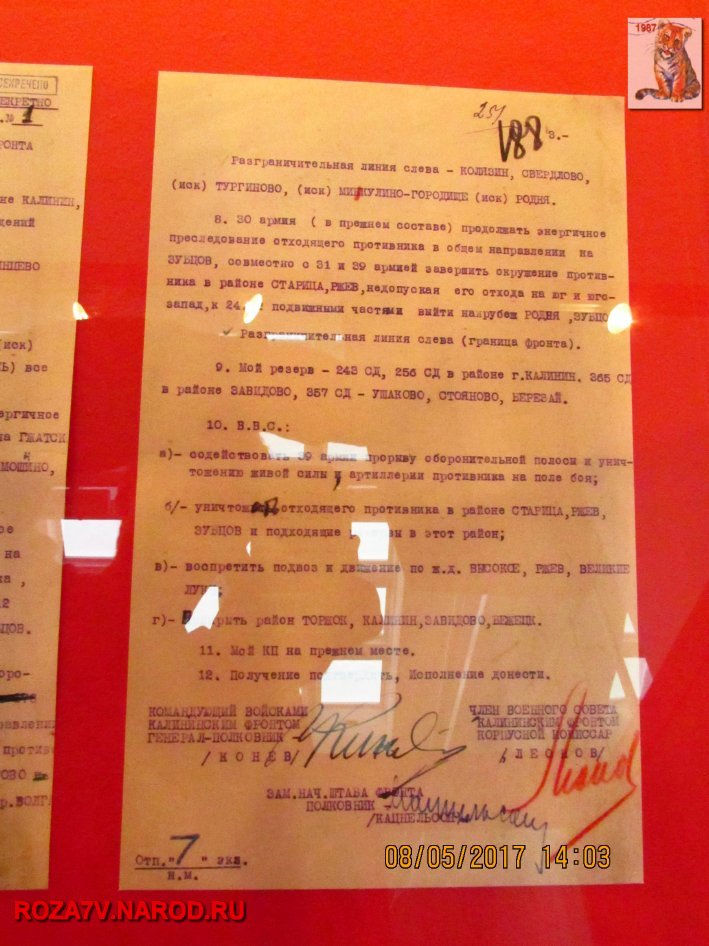 СЕКРЕЧЕНО
ЕКРЕТНО
.№ 1
РОНТА
не КАЛИНИН,
дений
ИНЦЕВО
(иск)
Ь) все
нергичное
на ГЖАТСК
МОШИНО,
ное
на
ка ,
12
БЦОВ.
оро-
правлени
противо
ОВО
р.ВОЛГА
1987
251
188 3.-
Разграничительная линия слева - КОЛИЗИН, СВЕРДЛОВО,
(иск) ТУРГИНОВО, (иск) МИКУЛИНО-ГОРОДИЩЕ (иск) РОДНЯ.
8. 30 армия ( в прежнем составе) продолжать энергичное
преследование отходящего противника в общем направлении на
ЗУБЦОВ, совместно с 31 и 39 армией завершить окружение против-
ника в районе СТАРИЦА,РЖЕВ,недопуская его отхода на юг и юго-
запад,к 24. подвижными частями выйти нарубеж РОДНЯ ,ЗУБЦО
Разграничительная линия слева (граница фронта).
9. Мой резерв - 243 СД, 256 СД в районе г.КАЛИНИН. 365 СД
в районе ЗАВИДОВО, 357 СД - УШАКОВО, СТОЯНОВО, БЕРЕЗАЙ.
10. В.В.С.:
а)- содействовать 39 армии прорыву оборонительной полосы и унич-
тожению живой силы и артиллерии противника на поле боя;
б/- уничтож отходящего противника в районе СТАРИЦА,РЖЕВ,
ЗУБЦОВ и подходящие в этот район;
в)- воспретить подвоз и движение по ж.д. ВЫСОКОЕ, РЖЕВ, ВЕЛИКИЕ
ЛУКИ;
г)- рыть район ТОРЖОК, КАЛИНИН,ЗАВИДОВО,БЕЖЕЦК.
11. Мой КП на прежнем месте.
12. Получение подтвердить, Исполнение донести.
КОМАНДУЮЩИЙ ВОЙСКАМИ
КАЛИНИНСКИМ ФРОНТОМ
ГЕНЕРАЛ-ПОЛКОВНИК
/ КОНЕВ /
ЧЛЕН ВОЕННОГО СОВЕТА
КАЛИНИНСКИМ ФРОНТОМ
КОРПУСНОЙ КОМИССАР
/ ЛЕОНОВ/
ЗАМ.НАЧ.ШТАБА ФРОНТА
ПОЛКОВНИК -
/КАЦНЕЛЬСОН/
Отп." 7 " экз.
Н.М.
08/05/2017 14:03
ROZA7V.NAROD.RU